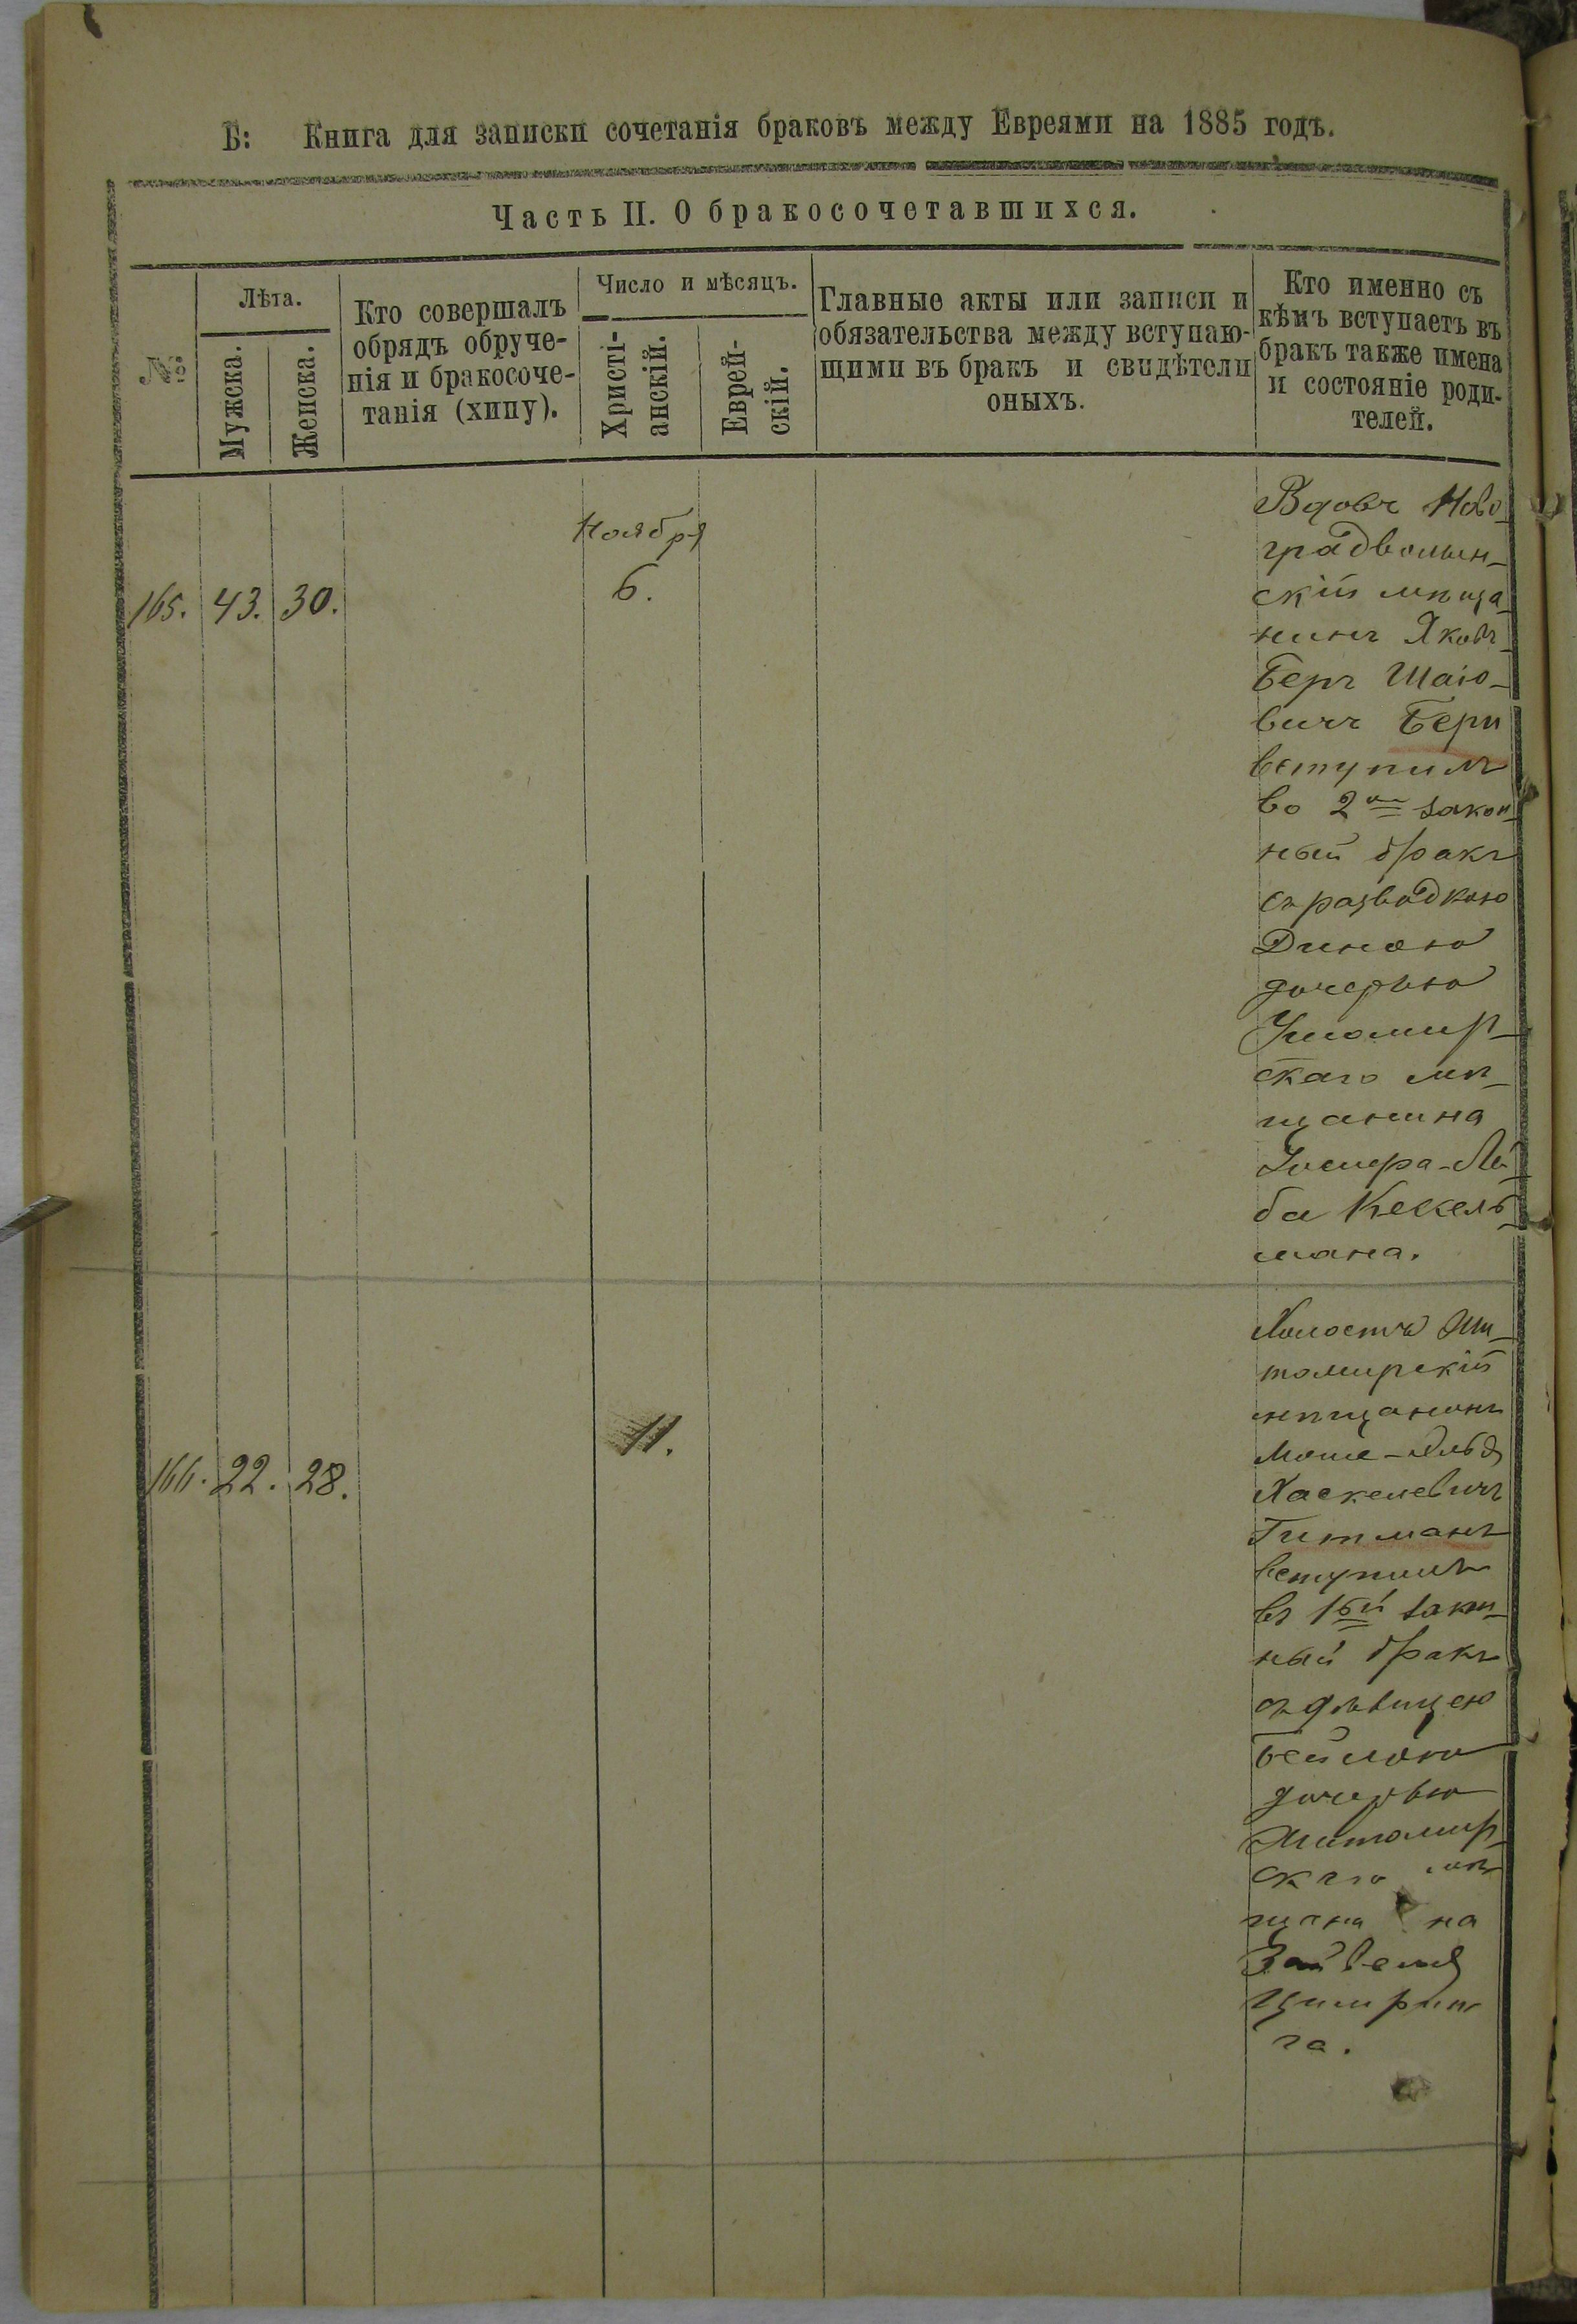 Б: Книга для записки сочетанія браковъ между Евреями на 1885 годъ.
Часть II. О бракосочетавшихся.
№
Лѣта.
Мужска.
Женска.
Кто совершалъ
обрядъ обруче-
нія и бракосоче-
танія (хипу).
Число и мѣсяцъ.
Христі-
анскій.
Еврей-
скій.
Главные акты или записи и
обязательства между вступаю-
щими въ бракъ и свидѣтели
оныхъ.
Кто именно съ
кѣмъ вступаетъ въ
бракъ также имена
и состояніе роди-
телей.
165. 43. 30.
Ноября
6.
Вдовъ Ново-
градволын-
скій мѣща-
нинъ Яковъ-
Беръ Шаіо-
вичъ
вступилъ
во 2ой закон-
ный бракъ
съ разводкою
Диною
дочерью
Ушомир-
скаго мѣ-
щанина
ба Кекель-
мана.
166. 22. 28.
11.
Холостъ Жи-
томирскій
мѣщанинъ
Моше-
Хаскелевичъ
Гитманъ
вступилъ
въ 1ый закон-
ный бракъ
съ дѣвицею
Бейлою
дочерью
Житомир-
скаго мѣ
щана на
Зайвеля
Цимринга
га.